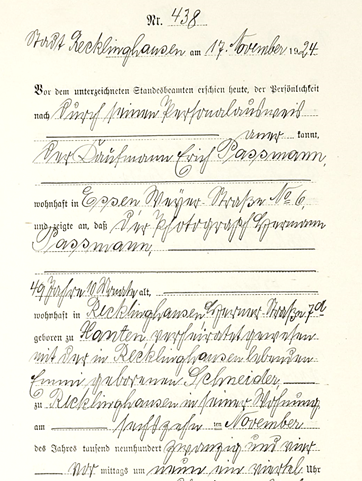 Nr. 438
Stadt Recklinghausen am 17. November 1924.
Vor dem unterzeichneten Standesbeamten erschien heute, der Persönlichkeit
nach durch seinen Personalausweis
aner kannt,
der Kaufmann Erich Passmann,
wohnhaft in Essen Weyer Straße No 6,
und zeigte an, daß der Photograph Hermann
Passmann,
49 Jahre Monate alt,
wohnhaft in Recklinghausen Herner Straße 7d
geboren zu Xanten verheiratet gewesen
mit der in Recklinghausen lebenden
Emma geborenen Schneider,
zu Recklinghausen in seiner Wohnung
am sechszehn ten November
des Jahres tausend neunhundert zwanzig und vier
vor mittags um neun ein viertel Uhr